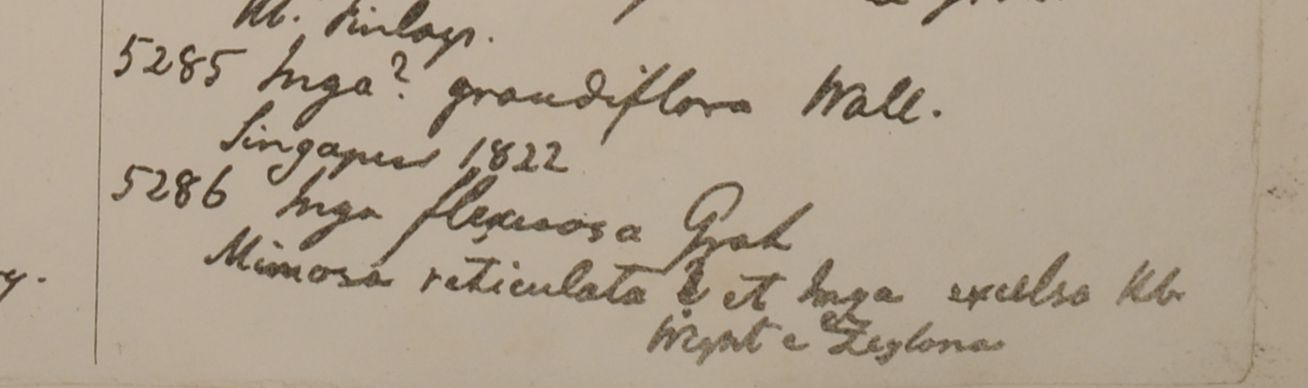 Hb. Finlays.
5285 Inga? grandiflora Wall.
Singapur 1822
5286 Inga flexuosa Grah
Mimosa reticulata ? et Inga excelsa Hb
Wight e Zeylona